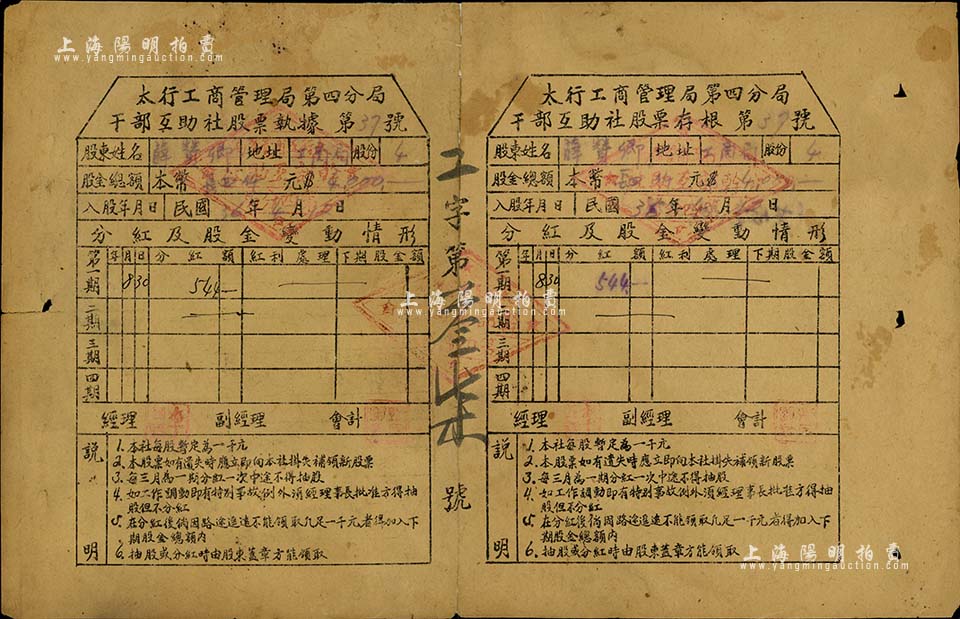 上海陽明拍賣
www.yangmingauction.com
太行工商管理局第四分局
干部互助社股票執據 第37號
股東姓名 薛贊卿 地址 工商局 股份 4
股金總額 本幣 元 4,000.—
入股年月日 民國 36年4月 日
分紅及股金變動情形
年 月 日 分紅額 紅利處理 下期股金額
第一期 8 30 544.—
二期
三期
四期
經理 副經理 會計
說明
1. 本社每股暫定為一千元
2. 本股票如有遺失時應立即向本社掛失補領新股票
3. 每三月為一期分紅一次中途不得抽股
4. 如工作調動即有特別事故例外須經理事長批准方得抽
股但不分紅
5. 在分紅後倘因路途遥遠不能領取凡足一千元者得加入下
期股金總額內
6. 抽股或分紅時由股東蓋章方能領取
工字第叁柒號
上海陽明拍賣
www.yangmingauction.com
上海陽明拍賣
www.yangmingauction.com
太行工商管理局第四分局
干部互助社股票存根 第37號
股東姓名 薛贊卿 地址 工商局 股份 4
股金總額 本幣 元
入股年月日 民國 36年4月 日
分紅及股金變動情形
年 月 日 分紅額 紅利處理 下期股金額
第一期 8 30 544.—
二期
三期
四期
經理 副經理 會計
說明
1. 本社每股暫定為一千元
2. 本股票如有遺失時應立即向本社掛失補領新股票
3. 每三月為一期分紅一次中途不得抽股
4. 如工作調動即有特別事故例外須經理事長批准方得抽
股但不分紅
5. 在分紅後倘因路途遥遠不能領取凡足一千元者得加入下
期股金總額內
6. 抽股或分紅時由股東蓋章方能領取
上海陽明拍賣
www.yangmingauction.com